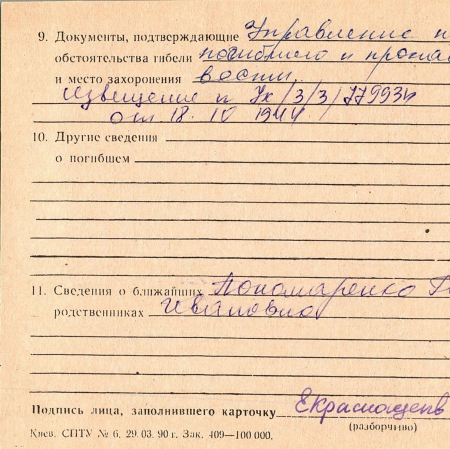 9. Документы, подтверждающие Управление
обстоятельства гибели погибшего и пропа
и место захоронения
Извещение
от 18. IV 1944
10. Другие сведения
о погибшем
11. Сведения о ближайших Пономаренко
родственниках Ивановна
Подпись лица, заполнившего карточку
(разборчиво)
Киев. СПТУ № 6. 29. 03. 90 г. Зак. 409—100 000.